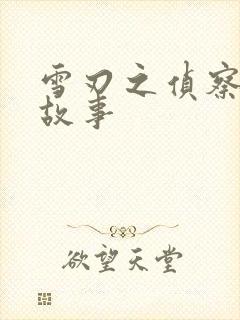 雪刃之偵察
故事
欲望天堂